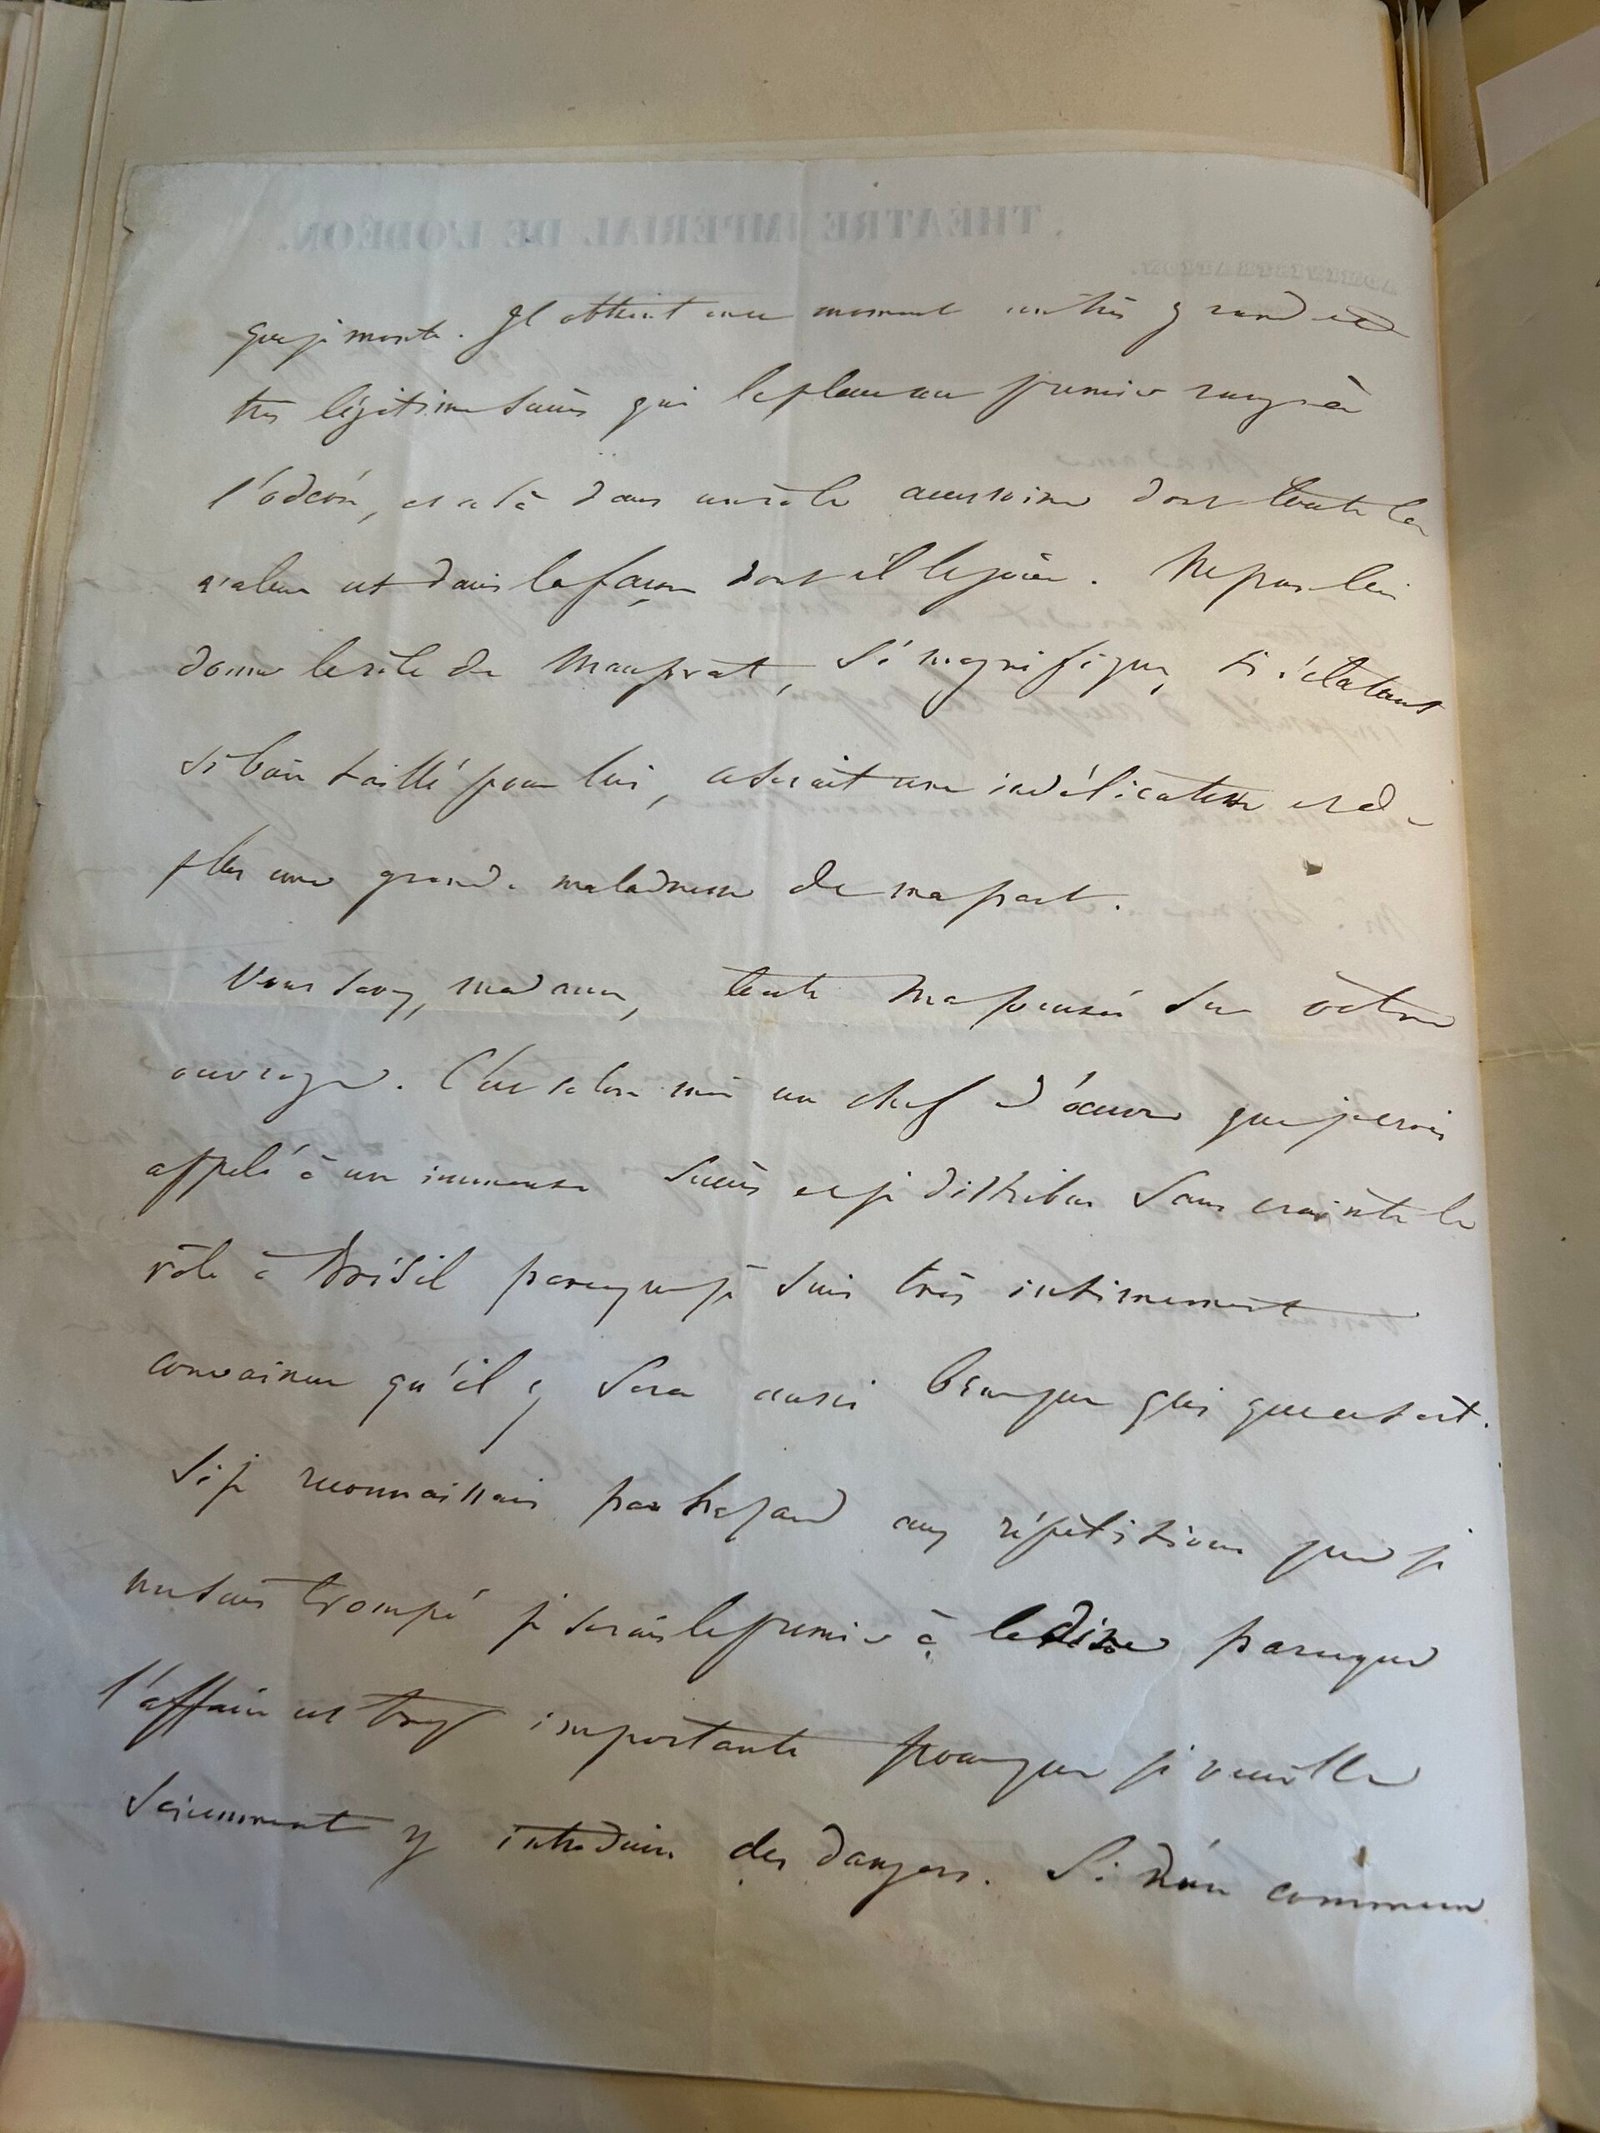 THÉATRE IMPÉRIAL DE L'ODÉON.
ADMINISTRATION.
que je monte. Il obtient en ce moment un très grand et
très légitime succès qui le place au premier rang à
l'odéon, et cela dans un rôle accessoire dont toute la
valeur est dans la façon dont il le joue. Ne pas lui
donner le rôle de Mauprat, si magnifique, si éclatant
si bien taillé pour lui, ce serait une indélicatesse et de
plus une grande maladresse de ma part.
Vous savez, madame, toute ma pensée sur votre
ouvrage. C'est selon moi un chef d'œuvre que je crois
appelé à un immense succès et je distribue sans crainte le
rôle à Brésil parce que je suis très intimement
convaincu qu'il y sera aussi bien que qui que ce soit.
Si je reconnaissais par hasard aux répétitions que je
me suis trompé je serais le premier à le dire parce que
l'affaire est trop importante pour que je veuille
sciemment y introduire des dangers. Si d'un commun